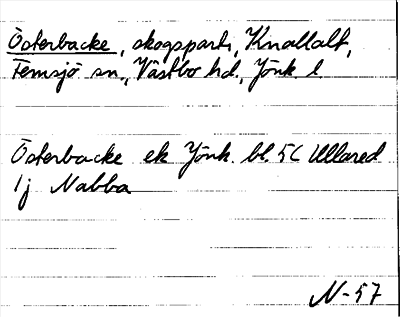 Österbacke, skogspart, Knallalt,
Femsjö sn., Västbo hd., Jönk. l
Österbacke ek Jönk. bl. 5C Ullared
1j Nabba
N-57